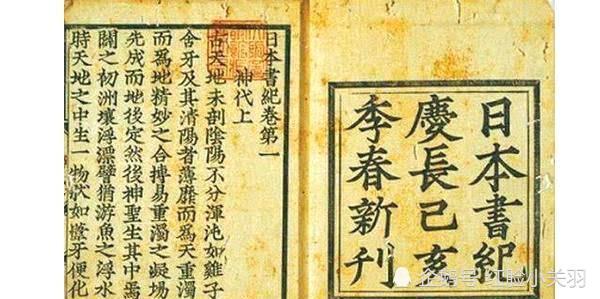 日本書紀
慶長己亥
季春新刊
日本書紀卷第一
神代上
古天地未剖陰陽不分渾沌如雞子
舍牙及其清陽者薄靡而爲天重濁
而爲地精妙之合搏易重濁之凝場
先成而地後定然後神聖生其中焉
闢之初洲壤浮漂譬猶游魚之浮水
時天地之中生一物狀如葦牙便化
企鹅号 红脸小关羽